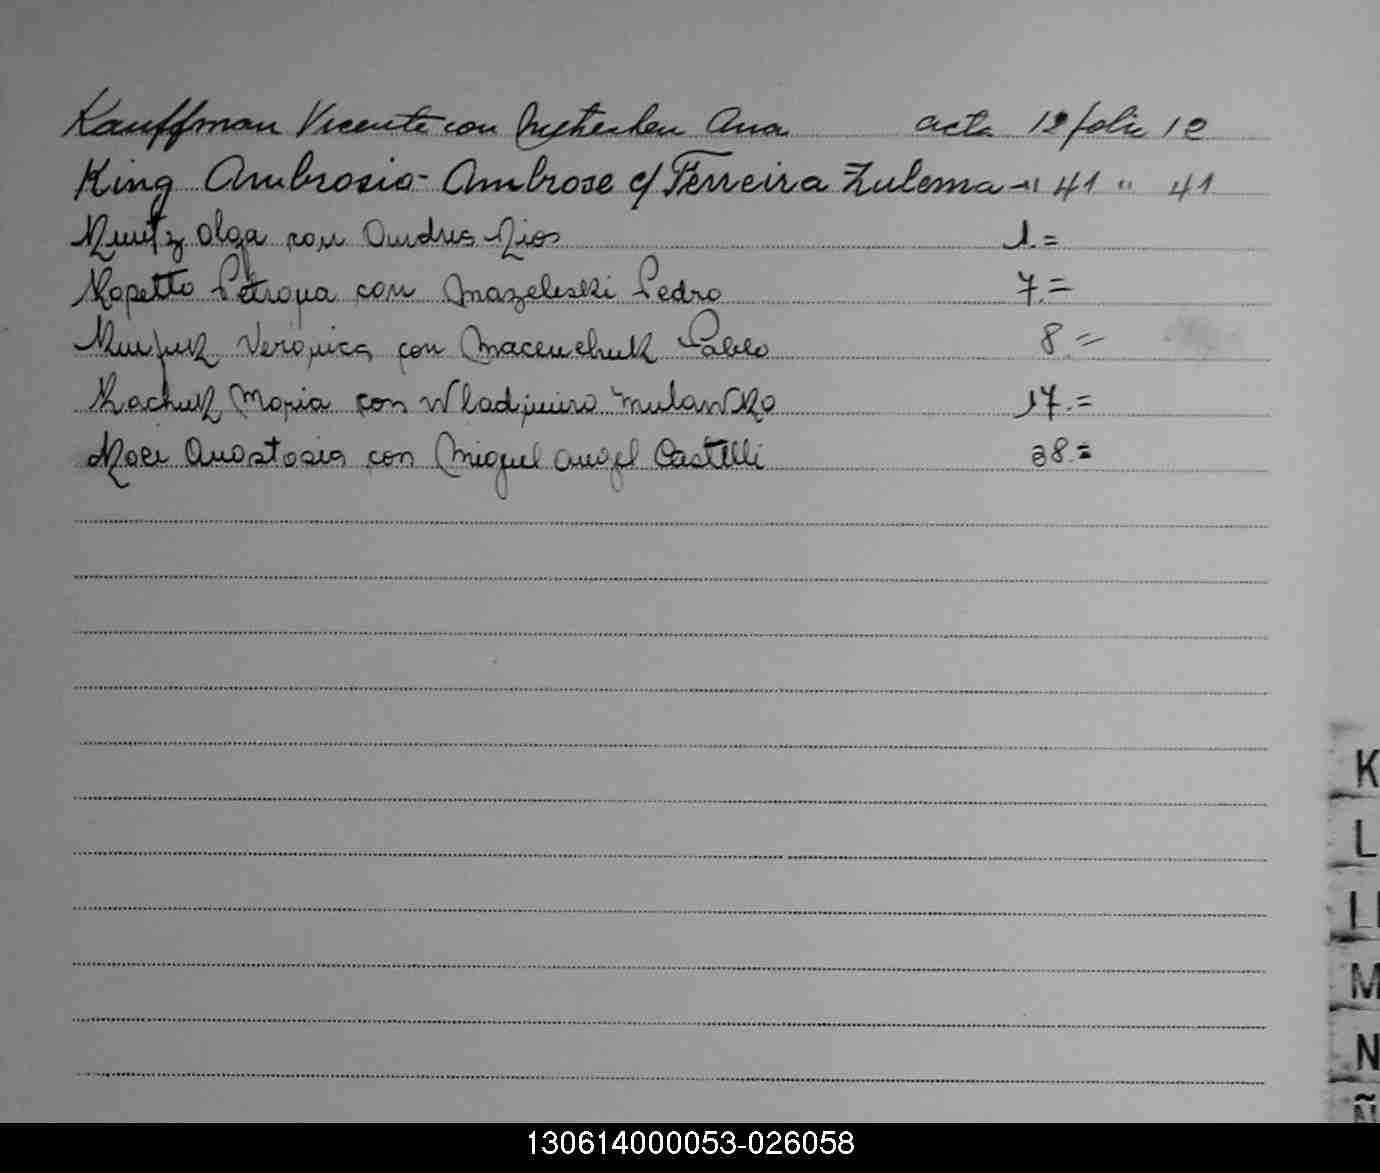 Kauffman Vicente con Ana acta 12 folio 12
King Ambrosio - Ambrose c/ Ferreira Zulema - " 41 " 41
Olga con Andres Rios 1.=
Kopetto Petrona con Mazeleski Pedro 7.=
Veronica con Macenchuk Pablo 8 =
Kachuk Maria con Wladjimiro Mulanko 17.=
Anastasia con Miguel Angel Castelli 38.=
K
L
Ll
M
N
Ñ
130614000053-026058